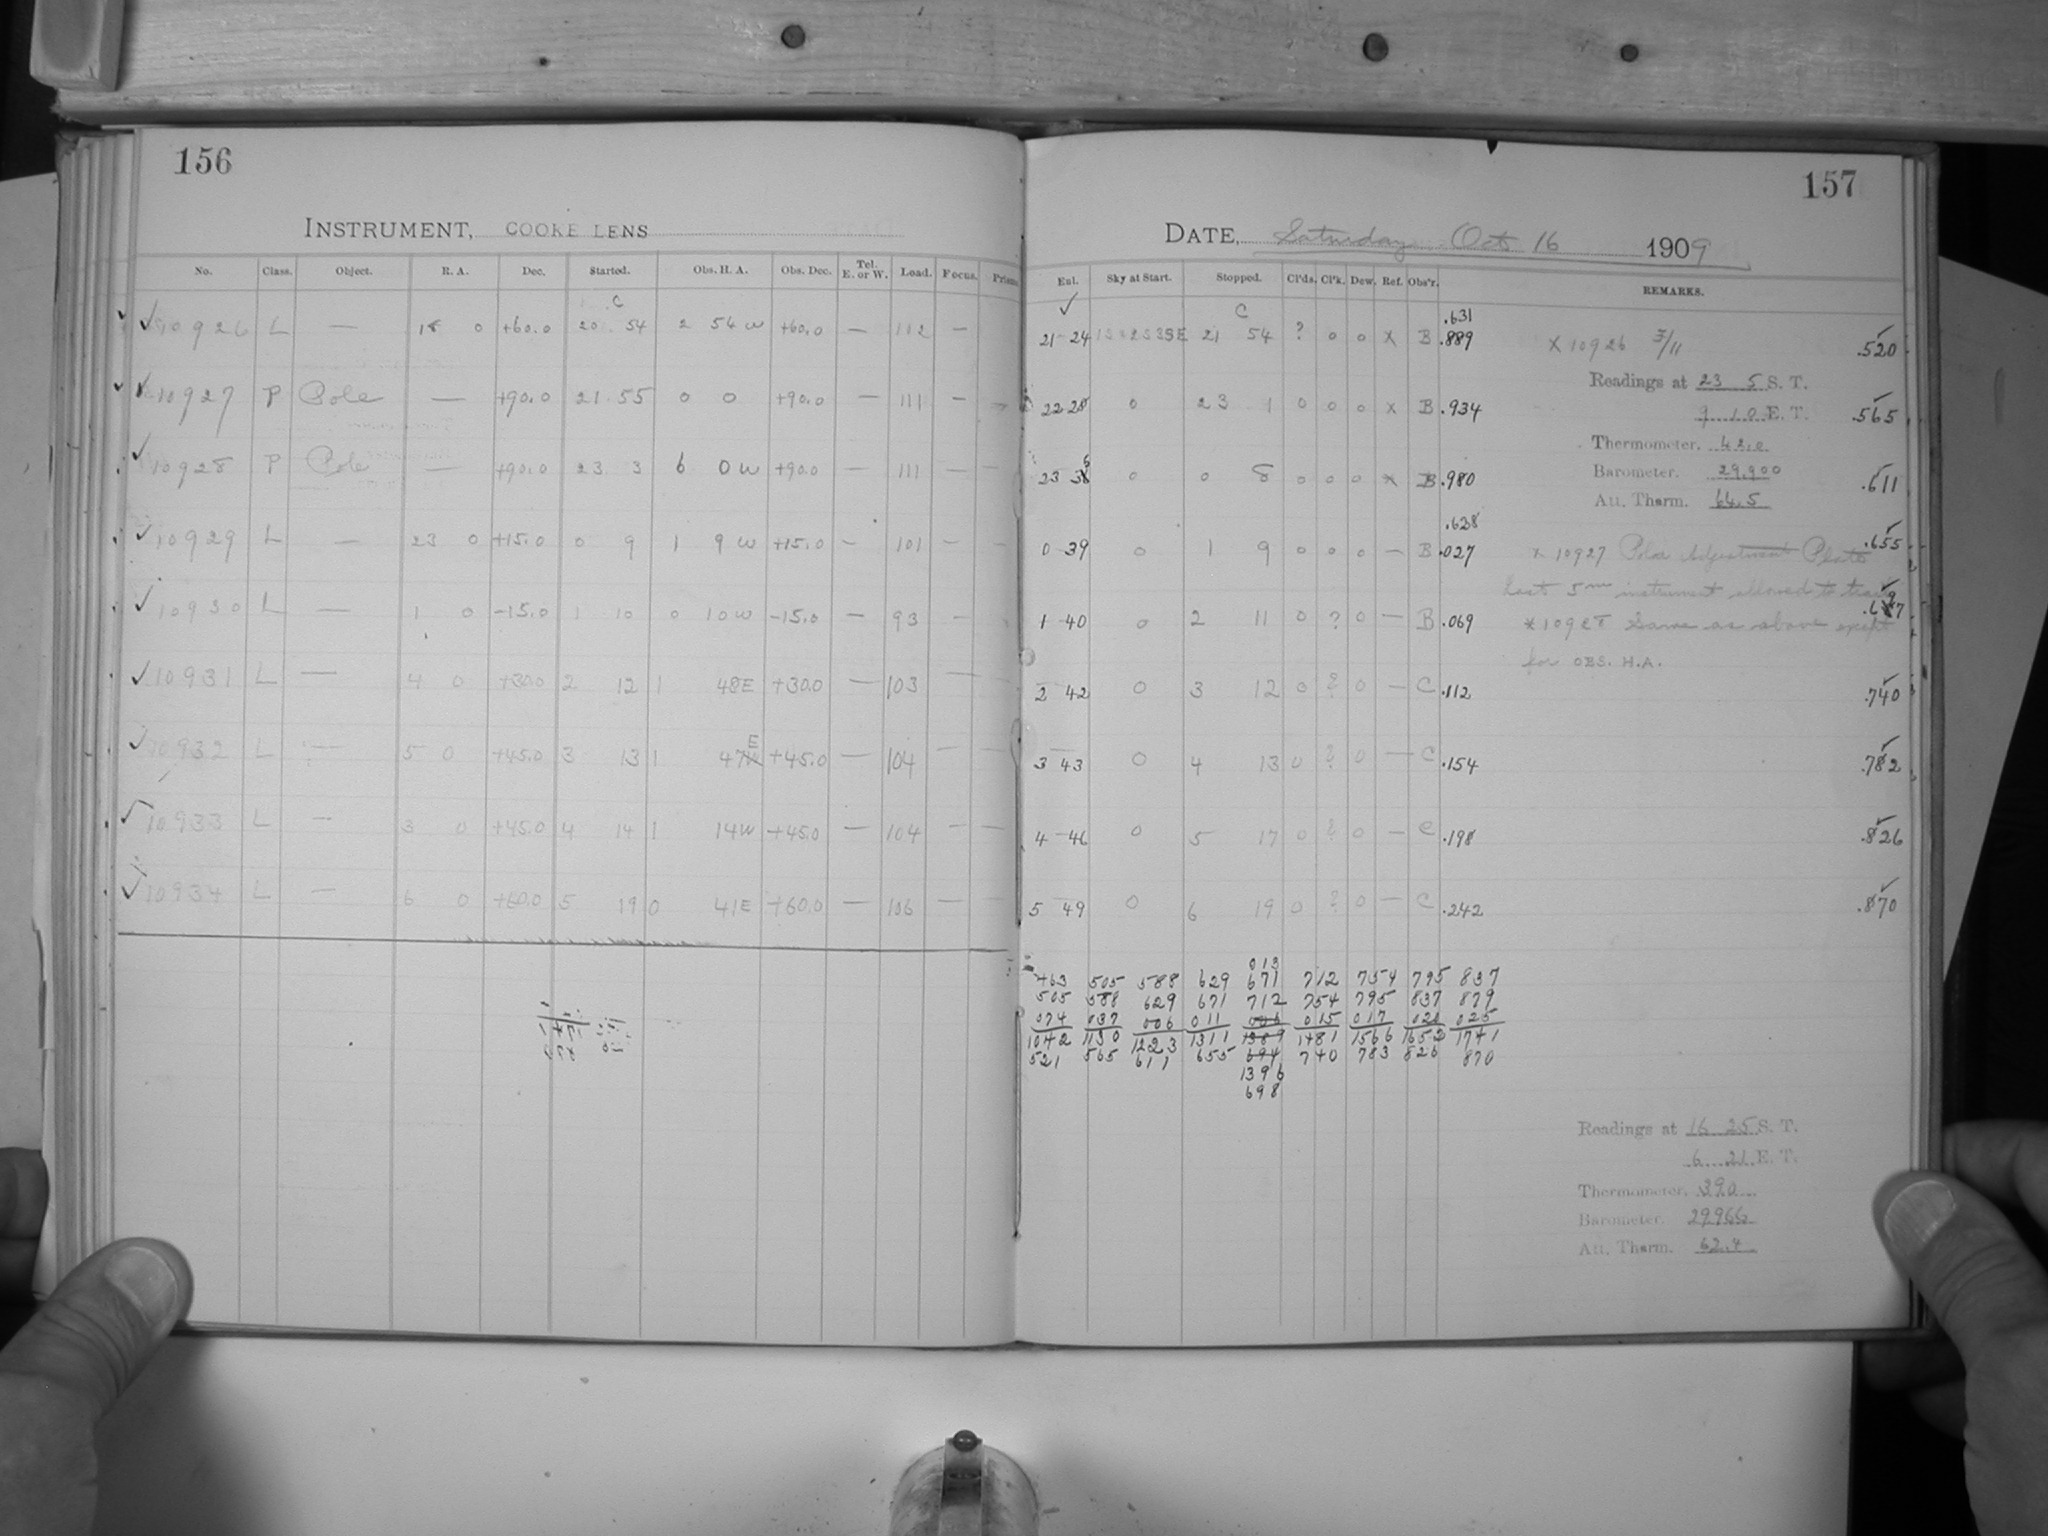 156
INSTRUMENT, COOKE LENS
No. Class. Object. R. A. Dec. Started. Obs. H. A. Obs. Dec. Tel. E. or W. Load. Focus. Prism.
C
10926 L — 18 0 +60.0 20 54 2 54 W +60.0 — 112 —
10927 P Pole — +90.0 21 55 0 0 +90.0 — 111 —
10928 P Pole — +90.0 23 3 6 0 W +90.0 — 111 — —
10929 L — 23 0 +15.0 0 9 1 9 W +15.0 — 101 — —
10930 L — 1 0 -15.0 1 10 0 10 W -15.0 — 93 —
10931 L — 4 0 +30.0 2 12 1 48 E +30.0 — 103 —
10932 L — 5 0 +45.0 3 13 1 47 E +45.0 — 104 — —
10933 L — 3 0 +45.0 4 14 1 14 W +45.0 — 104 — —
10934 L — 6 0 +60.0 5 19 0 41 E +60.0 — 106 — —
157
DATE, Saturday Oct 16 1909
Eul. Sky at Start. Stopped. Cl'ds. Cl'k. Dew. Ref. Obs'r. REMARKS.
✓ C .631
21 24 21 54 ? 0 0 X B .889 X 10926 3/11 .520
Readings at 23 5 S. T.
22 28 0 23 1 0 0 0 X B .934 9 10 E. T. .565
Thermometer. 42.0
23 36 0 0 8 0 0 0 X B .980 Barometer. 29.900 .611
Att. Therm. 64.5
.628
0 39 0 1 9 0 0 0 — B .027 x 10927 Polar Adjustment Plate .655
Last 5m instrument allowed to trail
1 40 0 2 11 0 ? 0 — B .069 * 10928 Same as above except
for OBS. H.A.
2 42 0 3 12 0 ? 0 — C .112 .740
3 43 0 4 13 0 ? 0 — C .154 .782
4 46 0 5 17 0 ? 0 — C .198 .826
5 49 0 6 19 0 ? 0 — C .242 .870
013
463 505 588 629 671 712 754 795 837
505 588 629 671 712 754 795 837 879
074 037 006 011 006 015 017 020 025
1042 1130 1223 1311 1389 1481 1566 1652 1741
521 565 611 655 694 740 783 826 870
1396
698
Readings at 16 25 S. T.
6 21 E. T.
Thermometer. 39.0
Barometer. 29.966
Att. Therm. 62.4